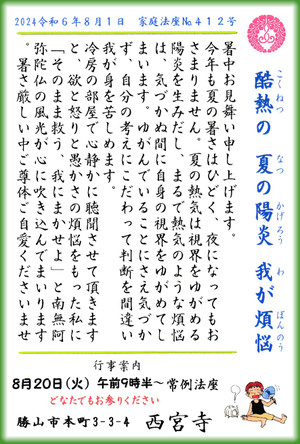 2024令和6年8月1日　家庭法座№412号
酷熱の　夏の陽炎　我が煩悩
こくねつ　なつ　かげろう　わ　ぼんのう
暑中お見舞い申し上げます。
今年も夏の暑さはひどく、夜になってもお
さまりません。夏の熱気は視界をゆがめる
陽炎を生みだし、まるで熱気のような煩悩
は、気づかぬ間に自身の視界をゆがめてし
まいます。ゆがんでいることにさえ気づか
ず、自分の考えにこだわって判断を間違い
我が身を苦しめます。
冷房の部屋で心静かに聴聞させて頂きます
と、欲と怒りと愚かさの煩悩をもった私に
「そのまま救う、我にまかせよ」と南無阿
弥陀仏の風光が心に吹き込んでまいります
。暑さ厳しい中ご尊体ご自愛くださいませ
行事案内
8月20日(火) 午前9時半～常例法座
どなたでもお参りください
勝山市本町3-3-4　西宮寺